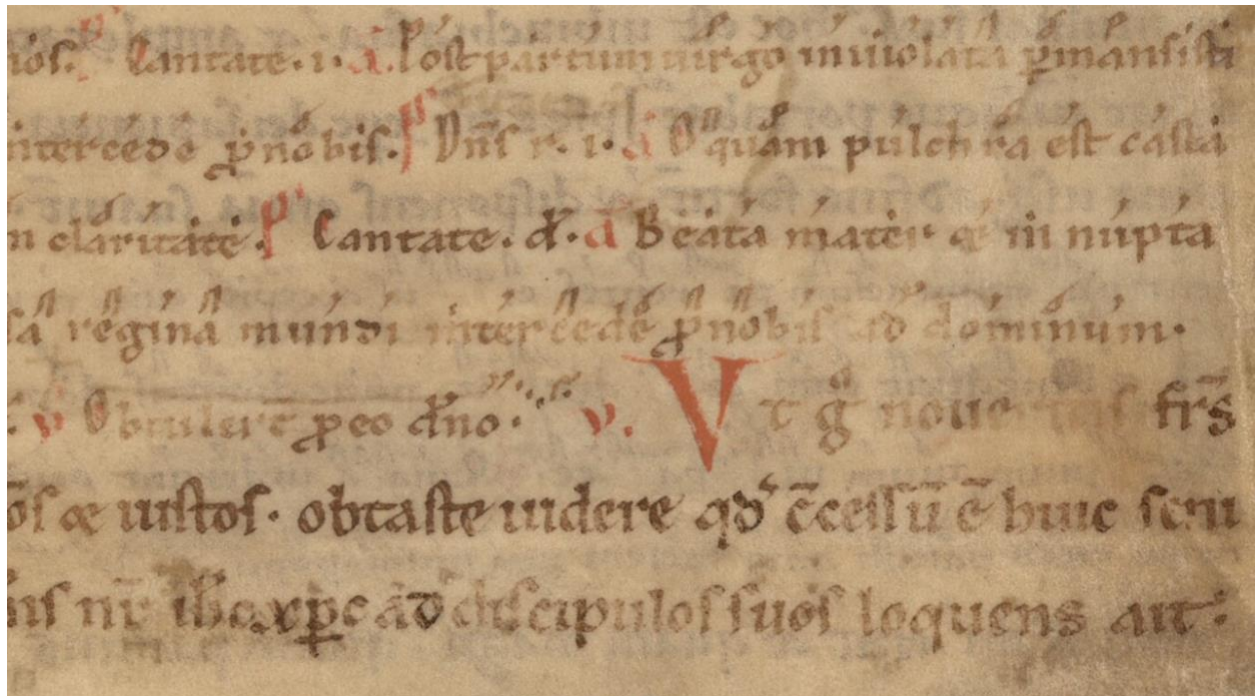 ios. p̃ Cantate. i. a. Post partum uirgo inuiolata ꝑmansisti
intercede ꝓ nobis. p̃ Dn̄s r. i. a O quam pulchra est casta
n claritate. p̃ Cantate. d̄. a Beata mater & in nupta
sa regina mundi intercede ꝓ nobis ad dominum.
v Obtulert ꝓ eo dn̄o. v. Vt g nouer frs̄
os & iustos. obtaste uidere qd c̄cessū ē huic
nr̄ ih̄c xp̄c ad discipulos suos loquens ait.